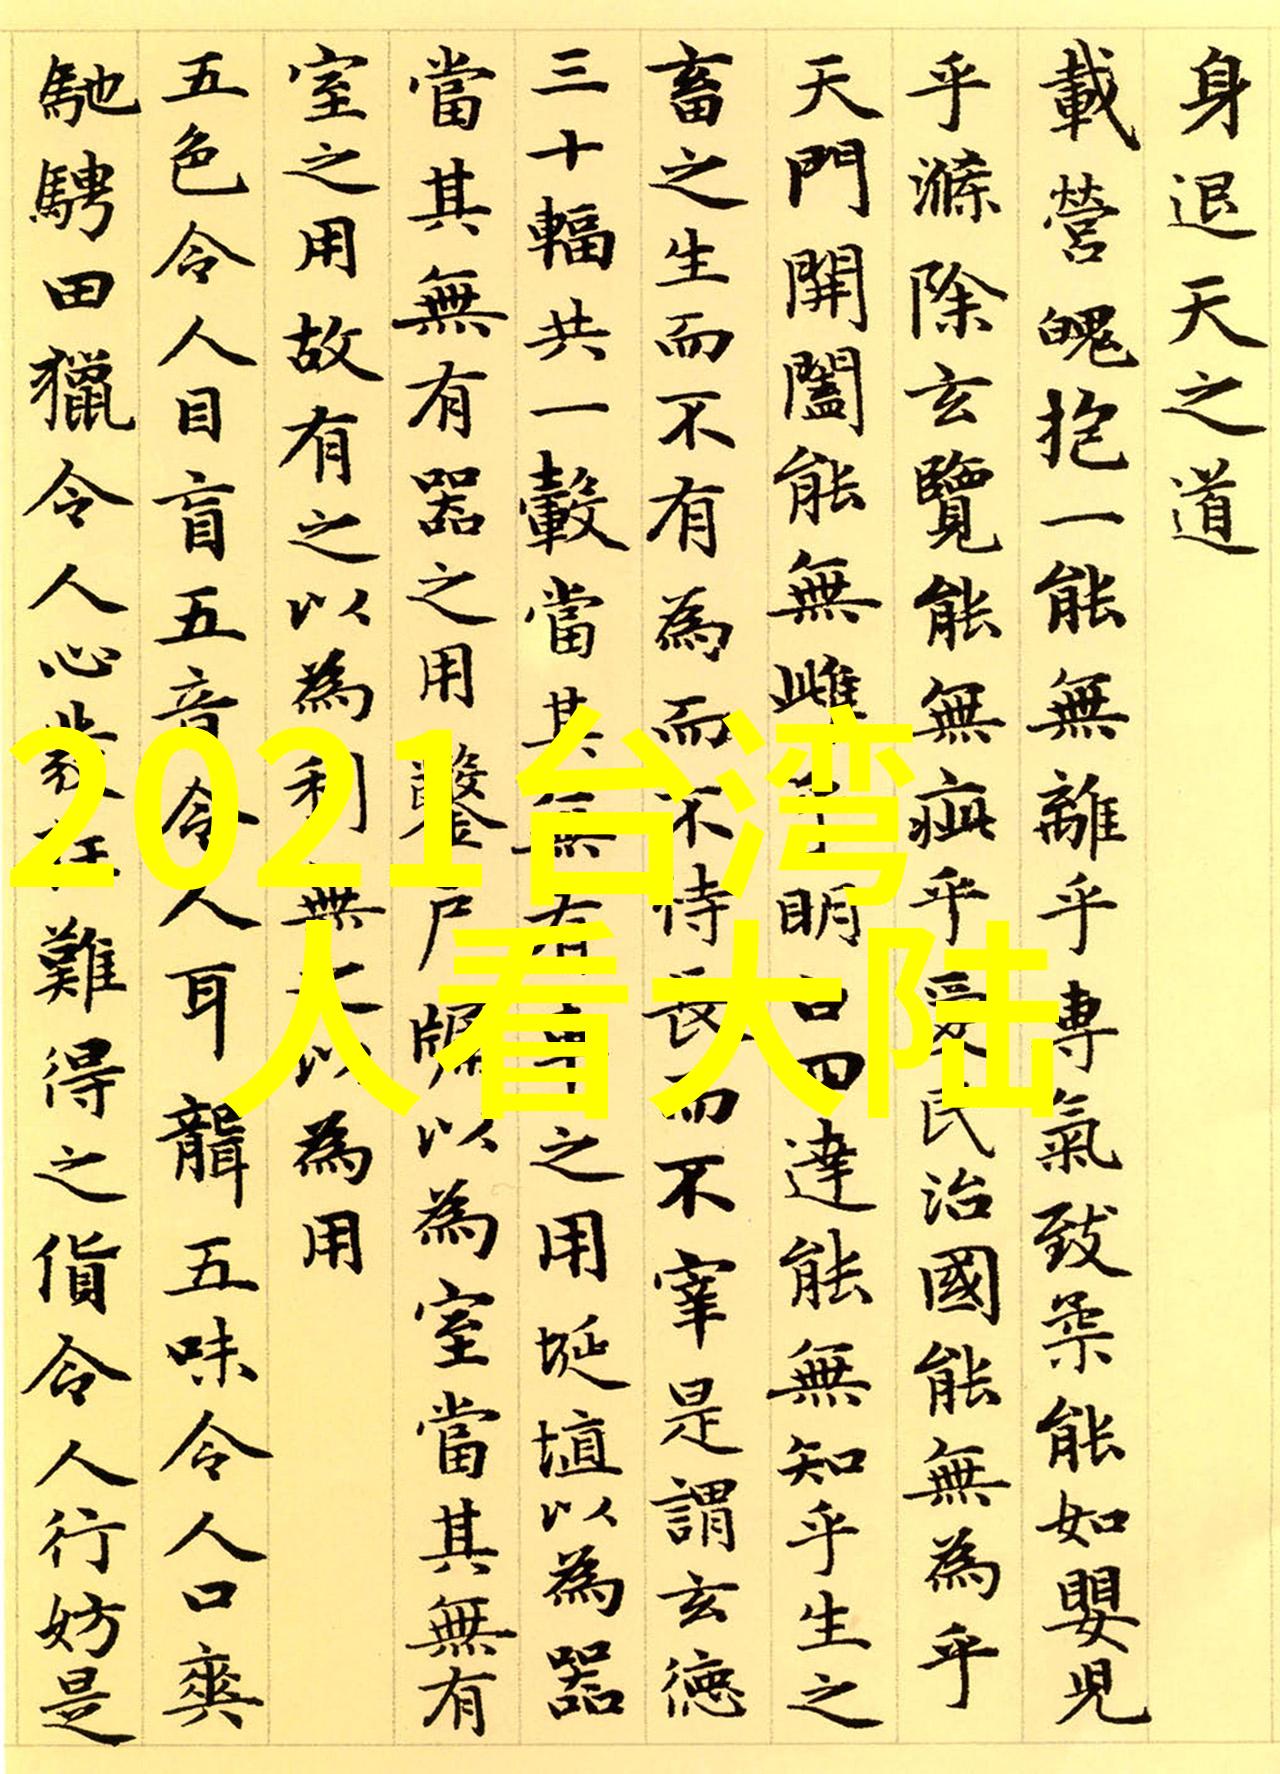 身退天之道
載營魄抱一能無離乎專氣致柔能如嬰兒
乎滌除玄覽能無疵乎愛民治國能無為乎
天門開闔能無雌乎明白四達能無知乎生之
畜之生而不有為而不恃長而不宰是謂玄德
三十輻共一轂當其無有車之用埏埴以為器
當其無有器之用鑿戶牖以為室當其無有
室之用故有之以為利無之以為用
五色令人目盲五音令人耳聾五味令人口爽
馳騁田獵令人心發狂難得之貨令人行妨是
2021台湾
人看大陆